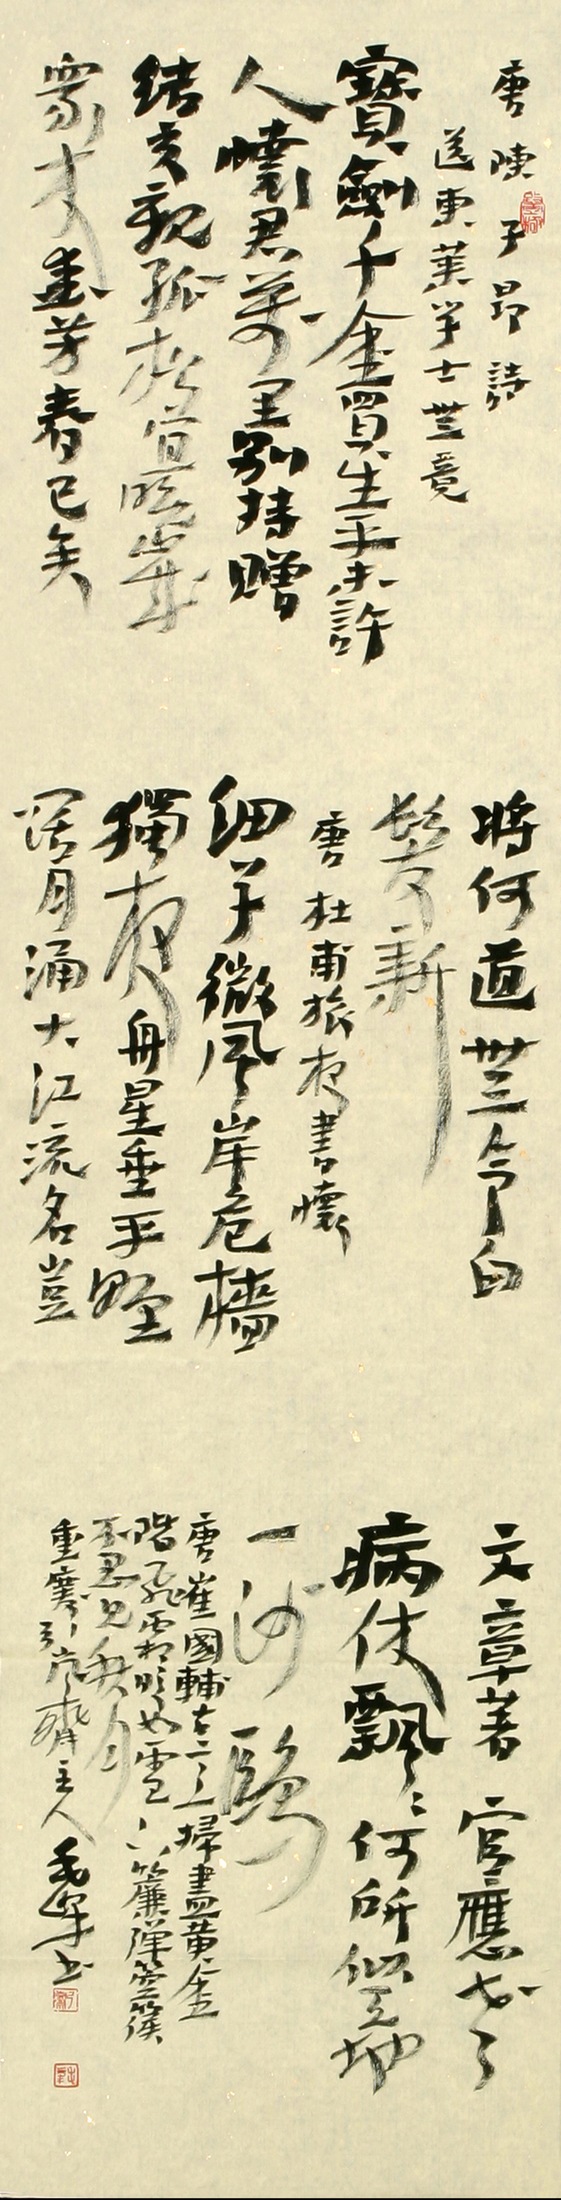 唐陳子昂詩
送東萊学士無竟
寶劍千金買生平未許
人懷君萬里別持贈
結交親孤松宜晚歲
衆木愛芳春已矣
將何道無令白
髮新
唐杜甫旅夜書懷
細草微風岸危檣
獨夜舟星垂平野
闊月涌大江流名豈
文章著官應老
病休飄飄何所似天地
一沙鷗
唐崔國輔古意掃盡黄金
階飛霜皎如雪下簾彈箜篌
不忍見秋月
齋主人